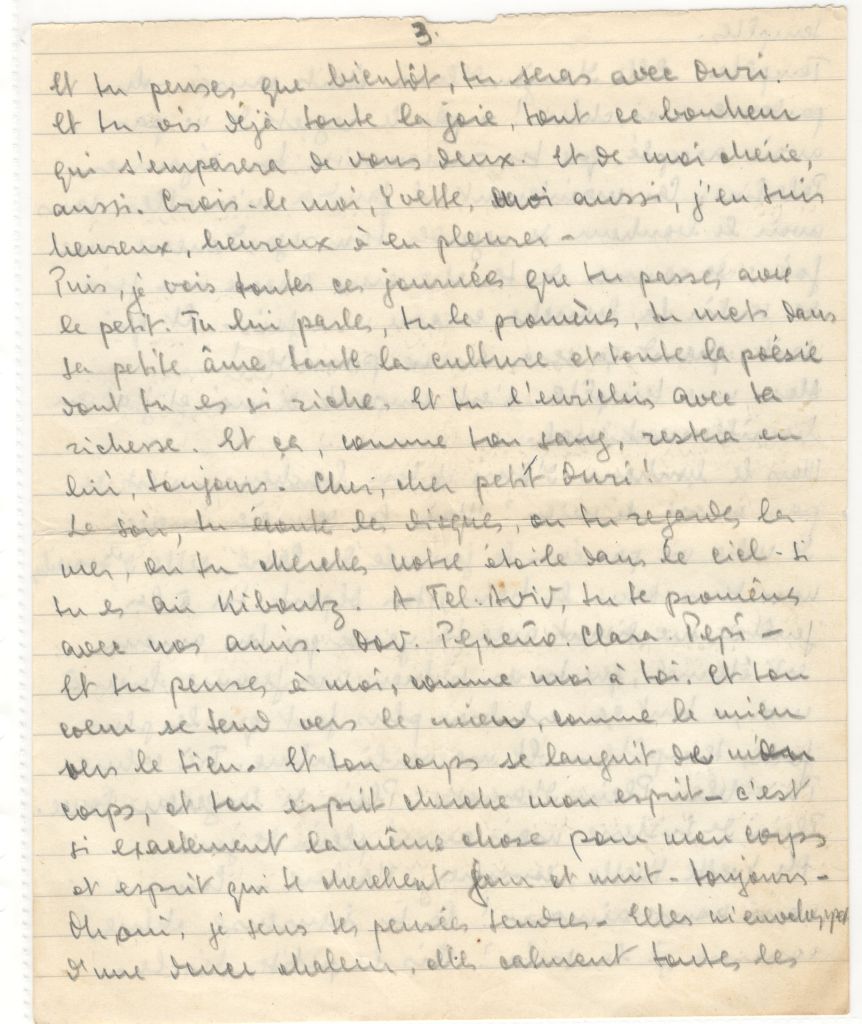 3.
Et tu penses que bientôt, tu seras avec Ouri.
Et tu vois déjà toute la joie, tout ce bonheur
qui s'emparera de vous deux. Et de moi chérie,
aussi. Crois-le moi, Yvette, moi aussi, j'en suis
heureux, heureux à en pleurer -
Puis, je vois toutes ces journées que tu passes avec
le petit. Tu lui parles, tu le promènes, tu mets dans
sa petite âme toute la culture et toute la poésie
dont tu es si riche. Et tu l'enrichis avec ta
richesse. Et ça, comme ton sang, restera en
lui, toujours. Cher, cher petit Ouri!
Le soir, tu écoute les disques, ou tu regardes la
mer, ou tu cherches notre étoile dans le ciel - si
tu es au Kiboutz. A Tel-Aviv, tu te promènes
avec nos amis. Dov. Pequeño. Clara. Pepi -
Et tu penses à moi, comme moi à toi. Et ton
coeur se tend vers le mien, comme le mien
vers le tien. Et ton corps se languit de mon
corps, et ton esprit cherche mon esprit - c'est
si exactement la même chose pour mon corps
et esprit qui te cherchent jour et nuit - toujours -
Oh oui, je sens tes pensées tendres - Elles m'enveloppent
d'une douce chaleur, elles calment toutes les